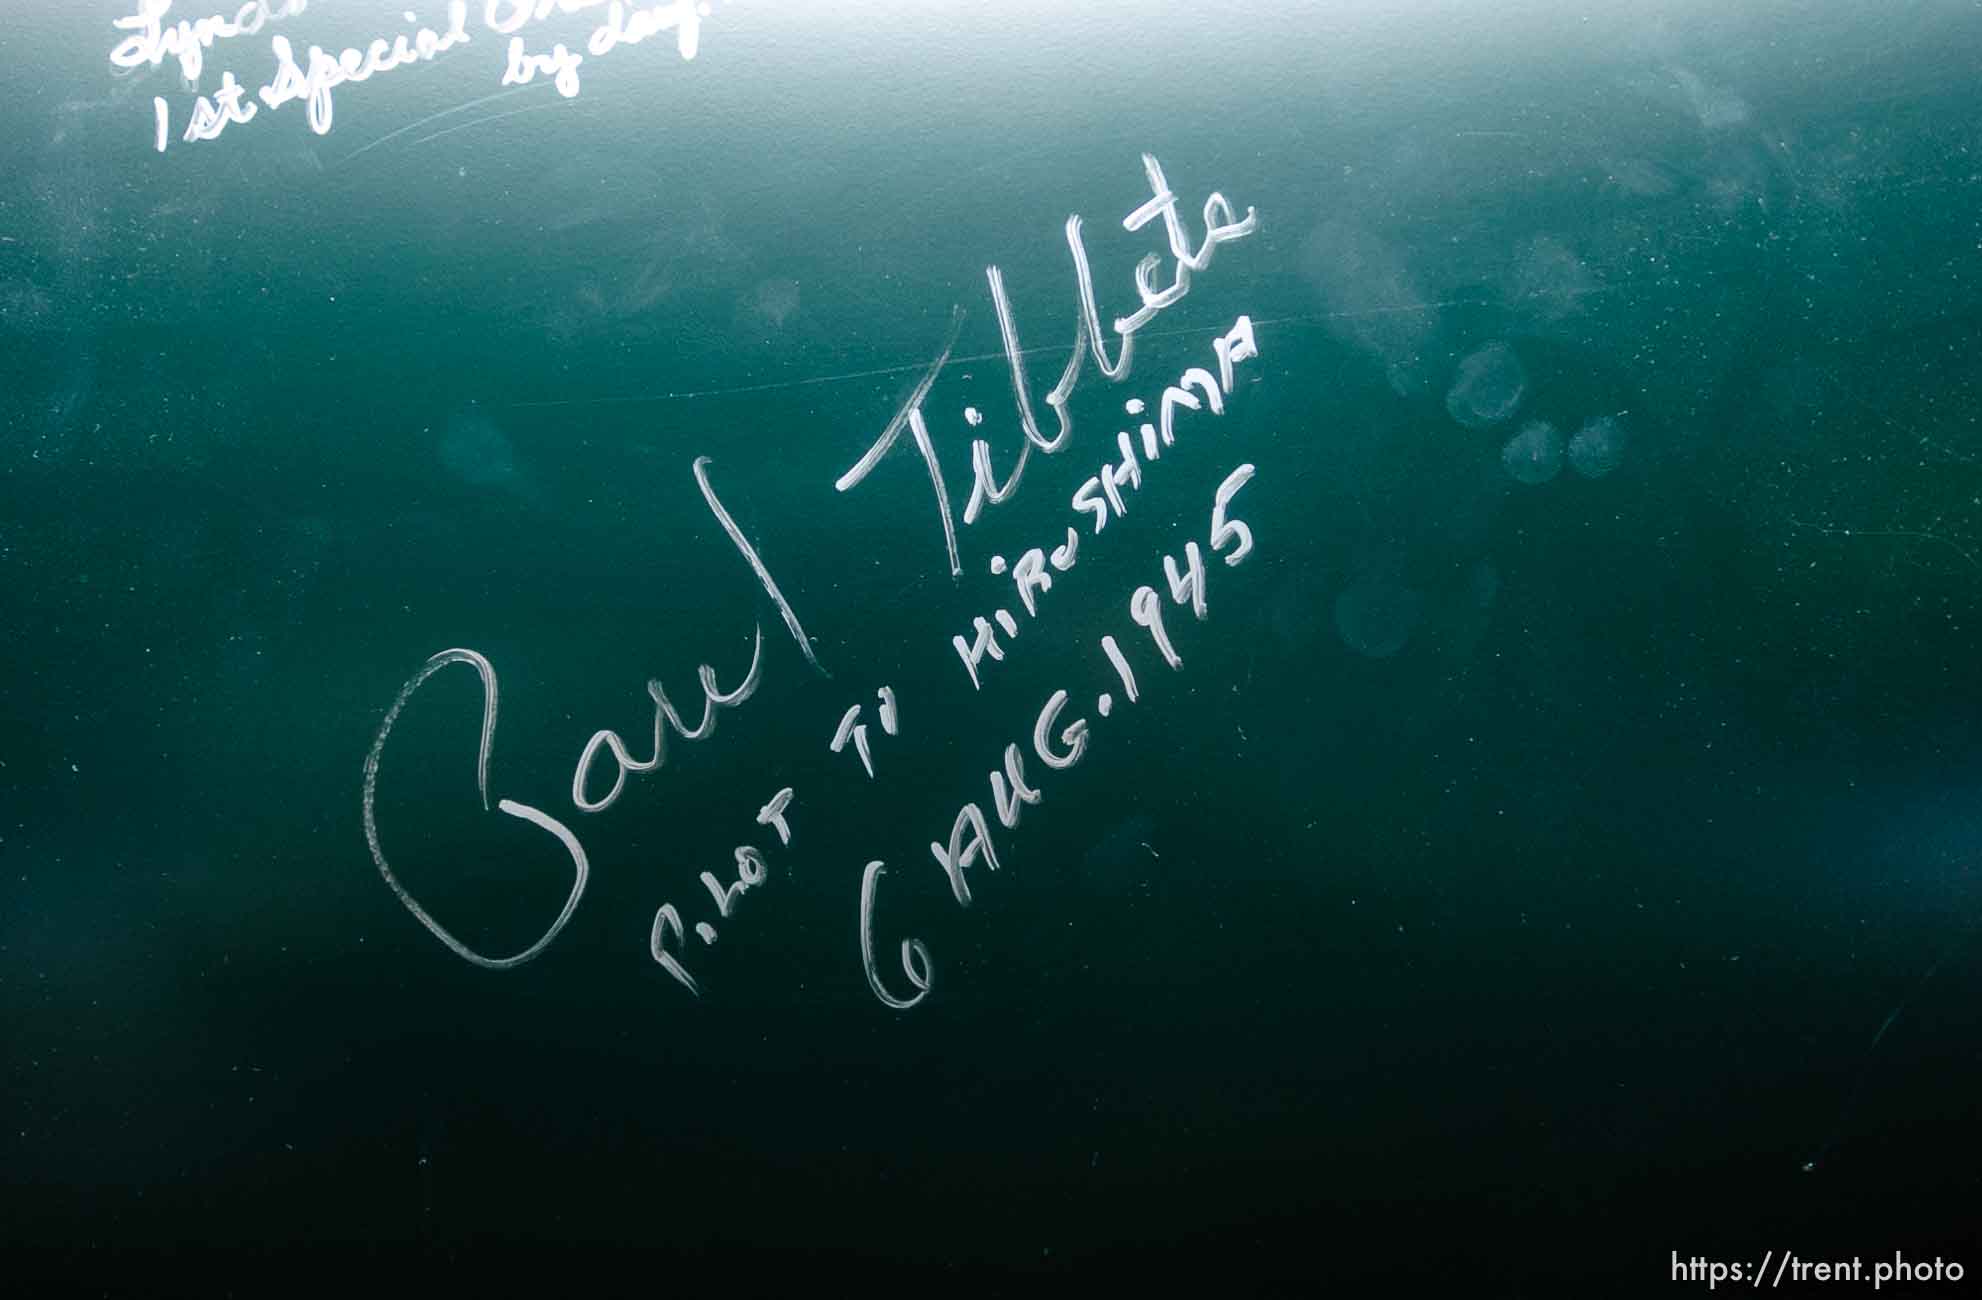 1st Special
by day.
Paul Tibbets
PILOT TO HIROSHIMA
6 AUG. 1945
https://trent.photo